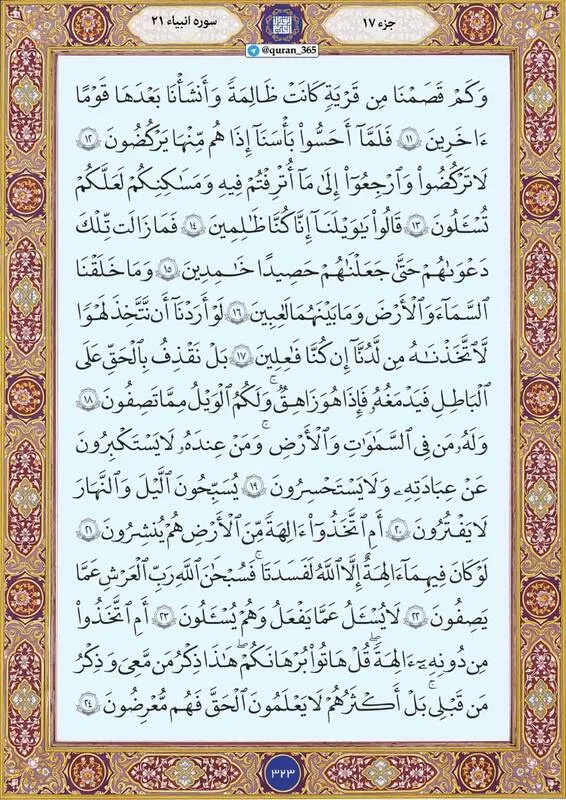 جزء ۱۷
سوره انبیاء ۲۱
@quran_365
وَكَمْ قَصَمْنَا مِن قَرْيَةٍ كَانَتْ ظَالِمَةً وَأَنشَأْنَا بَعْدَهَا قَوْمًا
ءَاخَرِينَ ۱۱ فَلَمَّآ أَحَسُّواْ بَأْسَنَآ إِذَا هُم مِّنْهَا يَرْكُضُونَ ۱۲
لَا تَرْكُضُواْ وَٱرْجِعُوٓاْ إِلَىٰ مَآ أُتْرِفْتُمْ فِيهِ وَمَسَٰكِنِكُمْ لَعَلَّكُمْ
تُسْـَٔلُونَ ۱۳ قَالُواْ يَٰوَيْلَنَآ إِنَّا كُنَّا ظَٰلِمِينَ ۱۴ فَمَا زَالَت تِّلْكَ
دَعْوَىٰهُمْ حَتَّىٰ جَعَلْنَٰهُمْ حَصِيدًا خَٰمِدِينَ ۱۵ وَمَا خَلَقْنَا
ٱلسَّمَآءَ وَٱلْأَرْضَ وَمَا بَيْنَهُمَا لَٰعِبِينَ ۱۶ لَوْ أَرَدْنَآ أَن نَّتَّخِذَ لَهْوًا
لَّٱتَّخَذْنَٰهُ مِن لَّدُنَّآ إِن كُنَّا فَٰعِلِينَ ۱۷ بَلْ نَقْذِفُ بِٱلْحَقِّ عَلَى
ٱلْبَٰطِلِ فَيَدْمَغُهُۥ فَإِذَا هُوَ زَاهِقٌ ۚ وَلَكُمُ ٱلْوَيْلُ مِمَّا تَصِفُونَ ۱۸
وَلَهُۥ مَن فِي ٱلسَّمَٰوَٰتِ وَٱلْأَرْضِ ۚ وَمَنْ عِندَهُۥ لَا يَسْتَكْبِرُونَ
عَنْ عِبَادَتِهِۦ وَلَا يَسْتَحْسِرُونَ ۱۹ يُسَبِّحُونَ ٱلَّيْلَ وَٱلنَّهَارَ
لَا يَفْتُرُونَ ۲۰ أَمِ ٱتَّخَذُوٓاْ ءَالِهَةً مِّنَ ٱلْأَرْضِ هُمْ يُنشِرُونَ ۲۱
لَوْ كَانَ فِيهِمَآ ءَالِهَةٌ إِلَّا ٱللَّهُ لَفَسَدَتَا ۚ فَسُبْحَٰنَ ٱللَّهِ رَبِّ ٱلْعَرْشِ عَمَّا
يَصِفُونَ ۲۲ لَا يُسْـَٔلُ عَمَّا يَفْعَلُ وَهُمْ يُسْـَٔلُونَ ۲۳ أَمِ ٱتَّخَذُواْ
مِن دُونِهِۦٓ ءَالِهَةً ۖ قُلْ هَاتُواْ بُرْهَٰنَكُمْ ۖ هَٰذَا ذِكْرُ مَن مَّعِيَ وَذِكْرُ
مَن قَبْلِي ۚ بَلْ أَكْثَرُهُمْ لَا يَعْلَمُونَ ٱلْحَقَّ فَهُم مُّعْرِضُونَ ۲۴
۳۲۳